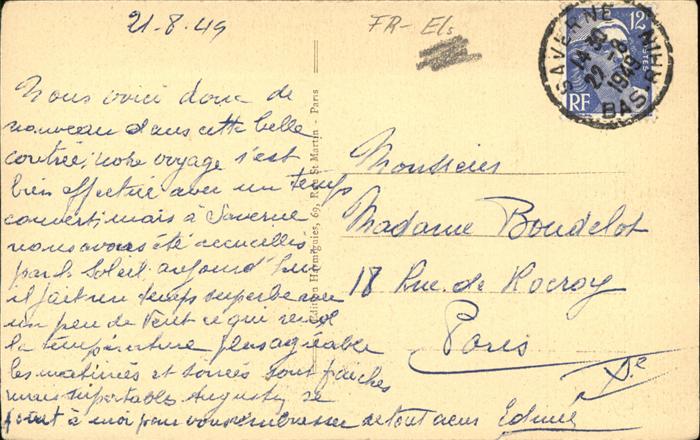 21-8-49
FR- Els
Nous voici donc de
nouveau dans cette belle
contrée, notre voyage s'est
bien effectué avec un temps
couvert mais à Saverne
nous avons été accueillis
par le Soleil. aujourd'hui
il fait un temps superbe avec
un peu de Vent ce qui rend
la température plus agréable
les matinées et soirées sont fraîches
mais supportables Auguste se
joint à moi pour vous embrasser de tout cœur Edmée
Edition Hermignies, 69, Rue St Martin - Paris
SAVERNE
BAS-RHIN
22-8
1949
12F
POSTES
RF
Monsieur
Madame Boudelot
18 Rue de Rocroy
Paris
Xe